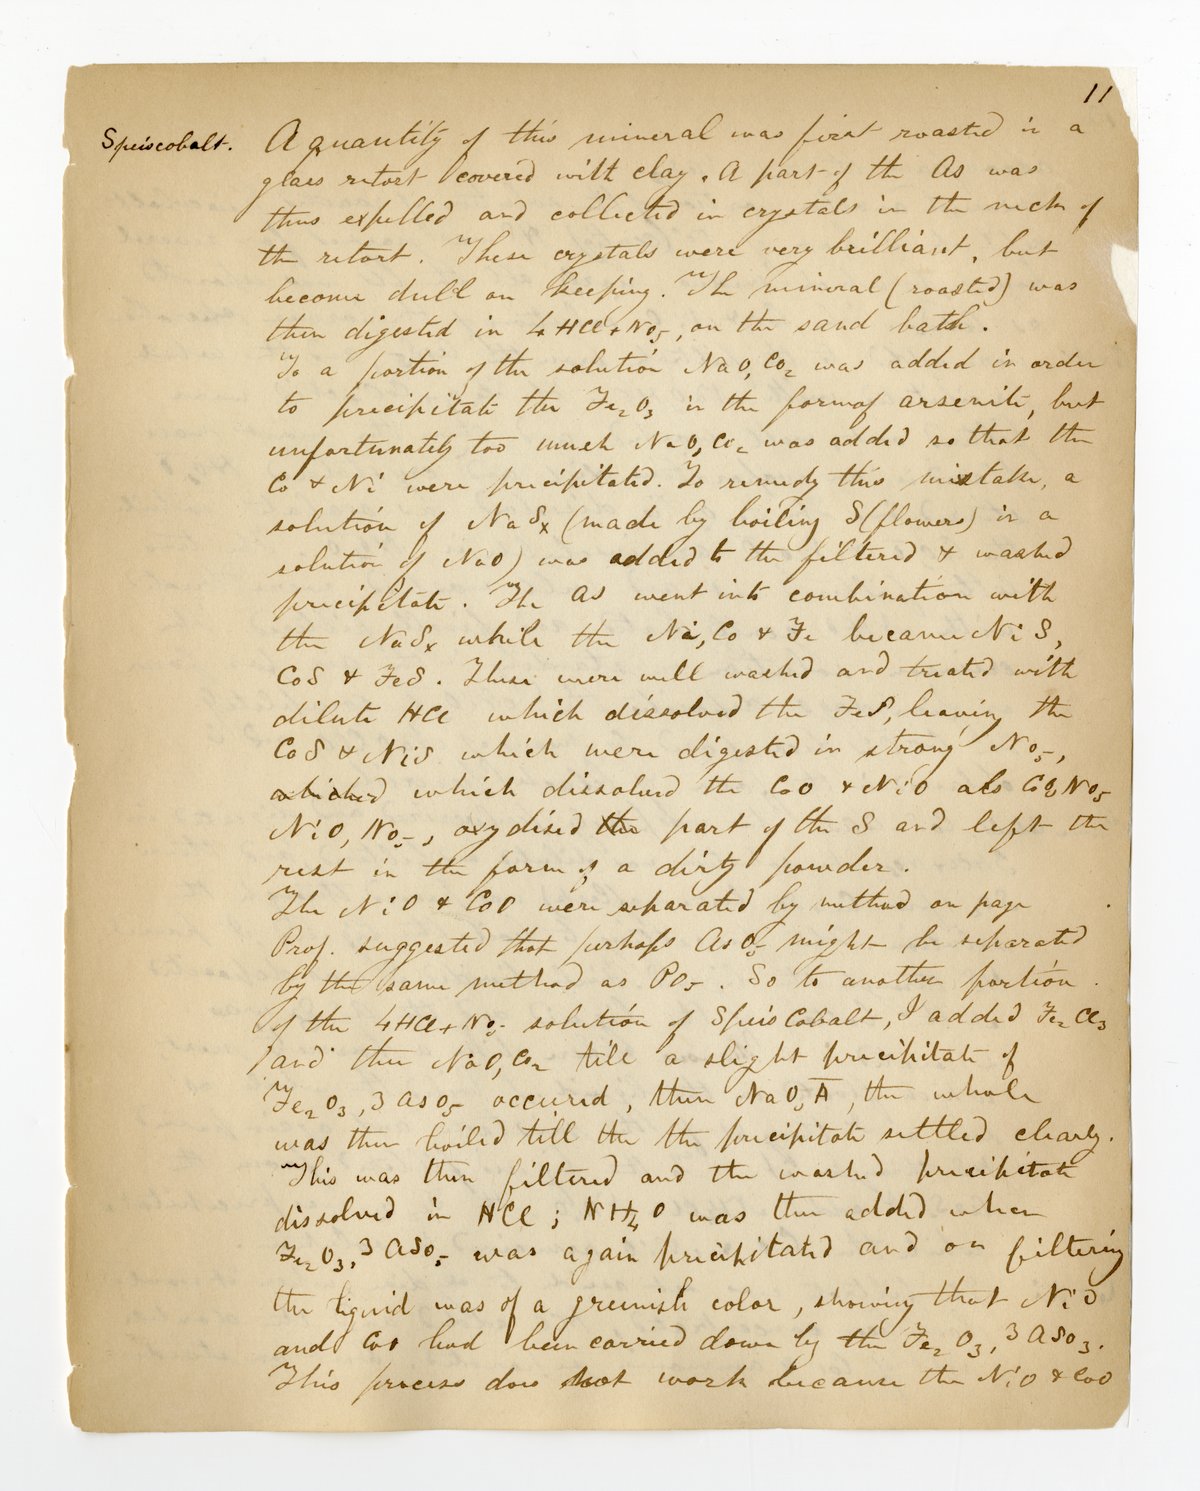 11
Speiscobalt. A quantity of this mineral was first roasted in a
glass retort covered with clay. A part of the As was
thus expelled and collected in crystals in the neck of
the retort. These crystals were very brilliant, but
become dull on keeping. The mineral (roasted) was
then digested in 4HCl+NO₅, on the sand bath.
To a portion of the solution NaO,CO₂ was added in order
to precipitate the Fe₂O₃ in the form of arsenite, but
unfortunately too much NaO,CO₂ was added so that the
Co & Ni were precipitated. To remedy this mistake, a
solution of NaSₓ (made by boiling S(flowers) in a
solution of NaO) was added to the filtered & washed
precipitate. The As went into combination with
the NaSₓ while the Ni, Co & Fe became NiS,
CoS & FeS. These were well washed and treated with
dilute HCl which dissolved the FeS, leaving the
CoS & NiS which were digested in strong NO₅,
which dissolved the CoO & NiO as CoO,NO₅
NiO,NO₅, oxydised the part of the S and left the
rest in the form of a dirty powder.
The NiO & CoO were separated by method on page
Prof. suggested that perhaps AsO₅ might be separated
by the same method as PO₅. So to another portion
of the 4HCl+NO₅ solution of Speiscobalt, I added Fe₂Cl₃
and then NaO,CO₂ till a slight precipitate of
Fe₂O₃,3AsO₅ occured, then NaO,A̅, the whole
was then boiled till the the precipitate settled clearly.
This was then filtered and the washed precipitate
dissolved in HCl; NH₄O was then added when
Fe₂O₃,3AsO₅ was again precipitated and on filtering
the liquid was of a greenish color, showing that NiO
and CoO had been carried down by the Fe₂O₃,3AsO₃.
This process does not work because the NiO & CoO